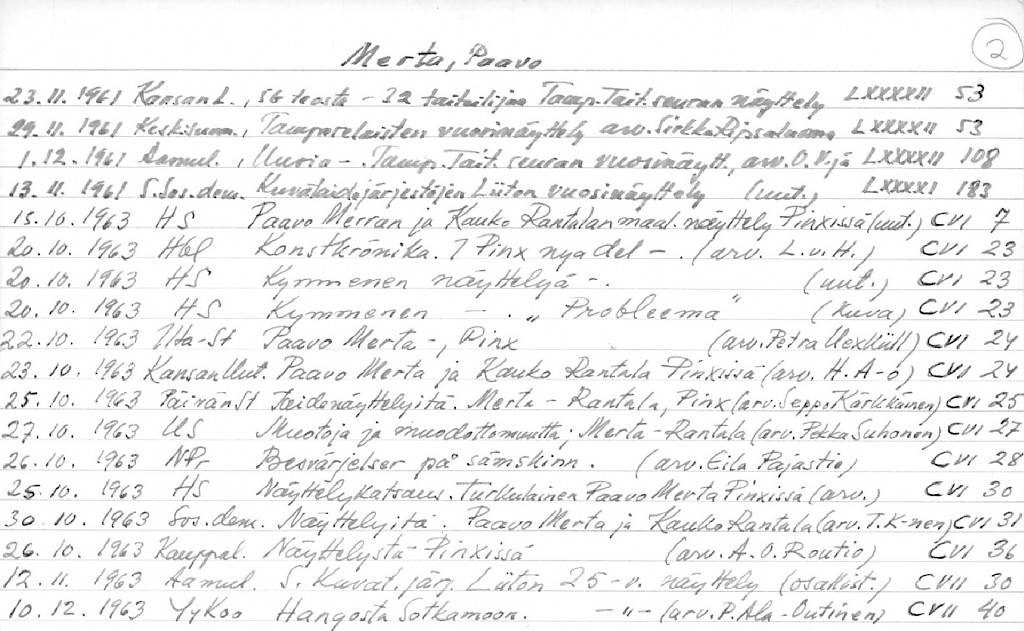 2
Merta, Paavo
23.11.1961 Kansan L., 56 teosta - 32 taiteilijaa Tamp. Tait. seuran näyttely LXXXXII 53
29.11.1961 Keskisuom., Tamperelaisten vuosinäyttely arv. Sirkka Ripsaluoma LXXXXII 53
1.12.1961 Aamul., Uusia -. Tamp. Tait. seuran vuosinäytt., arv. O.V.jä LXXXXII 108
13.11.1961 S.Sos.dem. Kuvataidejärjestöjen Liiton vuosinäyttely (uut.) LXXXXI 183
15.10.1963 HS Paavo Merran ja Kauko Rantalan maal. näyttely Pinxissä (uut.) CVI 7
20.10.1963 Hbl Konstkrönika. I Pinx nya del -. (arv. L.v.H.) CVI 23
20.10.1963 HS Kymmenen näyttelyä -. (uut.) CVI 23
20.10.1963 HS Kymmenen -. "Probleema" (kuva) CVI 23
22.10.1963 Ilta-St Paavo Merta -, Pinx (arv. Petra Uexküll) CVI 24
23.10.1963 Kansan Uut. Paavo Merta ja Kauko Rantala Pinxissä (arv. H.A-o) CVI 24
25.10.1963 Päivän St Taidenäyttelyitä. Merta - Rantala, Pinx (arv. Seppo Kärkkäinen) CVI 25
27.10.1963 US Muotoja ja muodottomuutta; Merta - Rantala (arv. Pekka Suhonen) CVI 27
26.10.1963 NPr Besvärjelser på sämskinn. (arv. Eila Pajastie) CVI 28
25.10.1963 HS Näyttelykatsaus. Turkulainen Paavo Merta Pinxissä (arv.) CVI 30
30.10.1963 Sos.dem. Näyttelyitä. Paavo Merta ja Kauko Rantala (arv. T.K-nen) CVI 31
26.10.1963 Kauppal. Näyttelystä Pinxissä (arv. A.O. Routio) CVI 36
12.11.1963 Aamul. S. Kuvat. järj. Liiton 25-v. näyttely (osallist.) CVII 30
10.12.1963 YyKoo Hangosta Sotkamoon. -"- (arv. P. Ala-Outinen) CVII 40